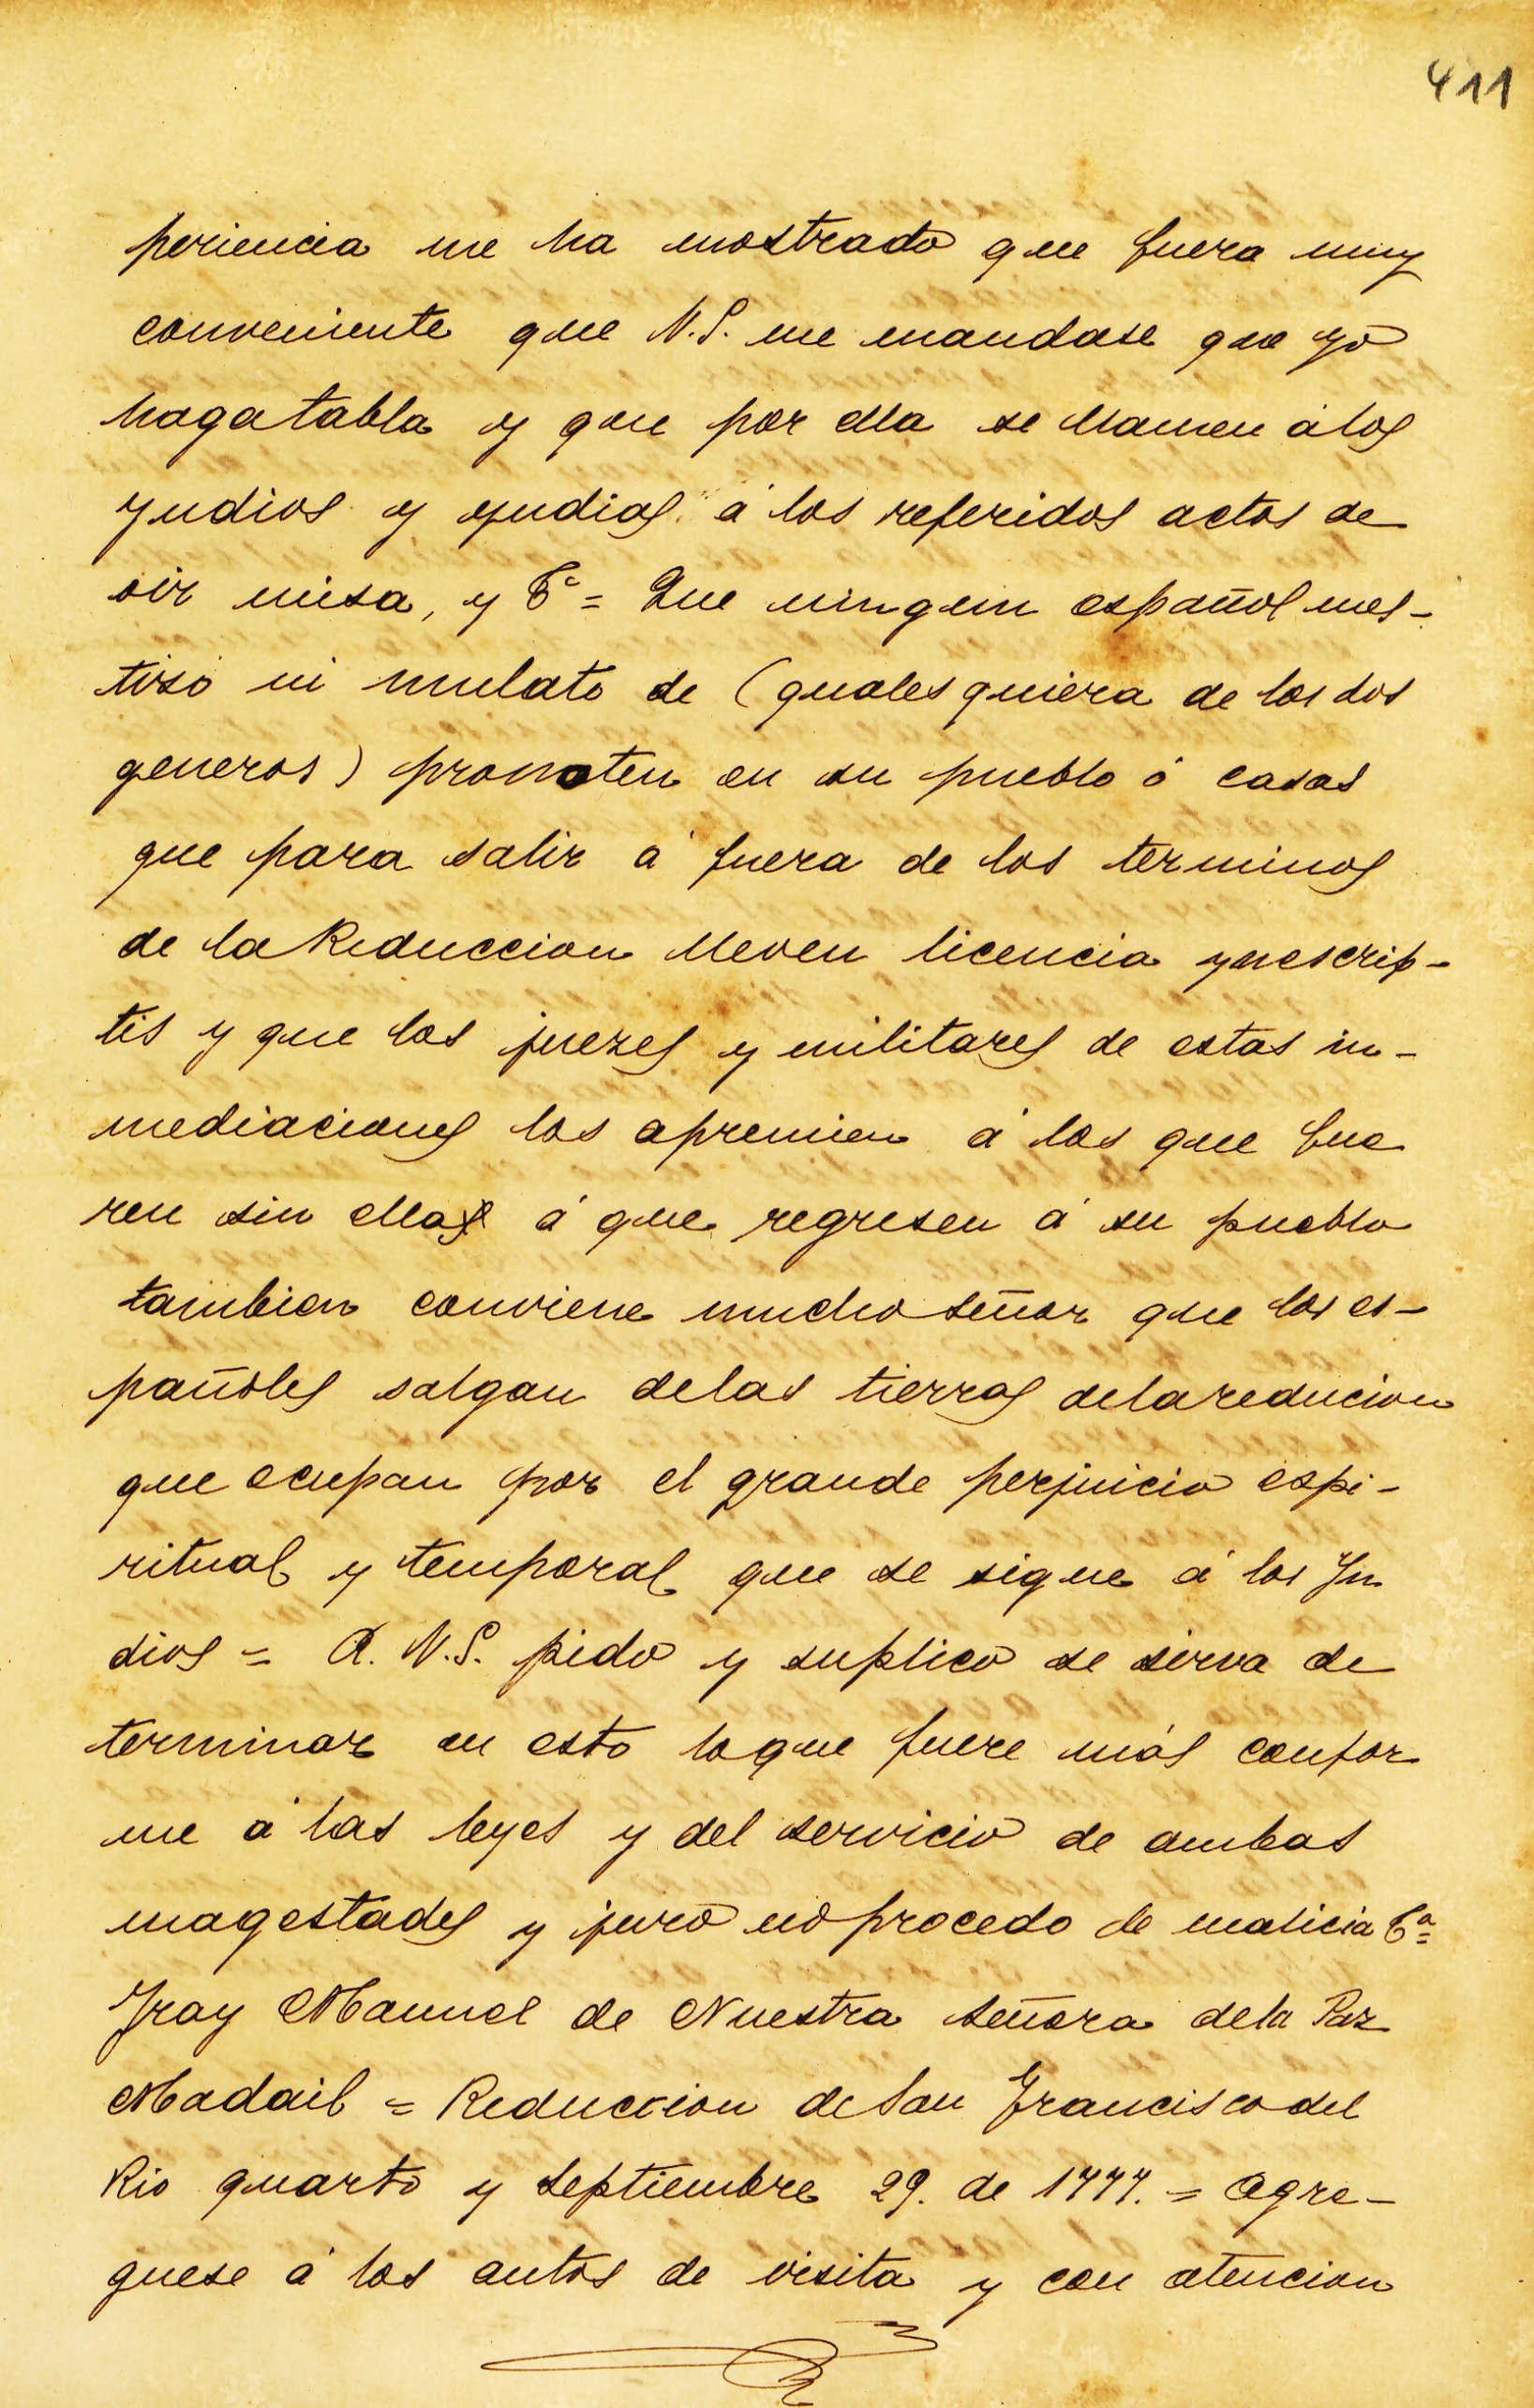 411
periencia me ha mostrado que fuera muy
conveniente que V.S. me mandase que yo
haga tabla y que por ella se llamen á los
yndios y yndias á los referidos actos de
oir misa, y &ª = Que ningun español mes-
tiso ni mulato de (quales quiera de los dos
generos) pronoten en su pueblo ó casas
que para salir á fuera de los terminos
de la Reduccion lleven licencia ynescrip-
tis y que los juezes y militares de estas in-
mediaciones los apremien á los que fue
ren sin ellas á que regresen á su pueblo
tambien conviene mucho señor que los es-
pañoles salgan delas tierras delareducion
que ocupan por el grande perjuicio espi-
ritual y temporal que se sigue á los Yn
dios = A. V.S. pido y suplico se sirva de
terminar en esto loque fuere más confor
me á las leyes y del servicio de ambas
magestades y juro no procedo de malicia &ª=
Fray Manuel de Nuestra señora dela Paz
Madail = Reduccion de San Francisco del
Rio quarto y Septiembre 29. de 1777. = Agre-
guese á los autos de visita y con atencion